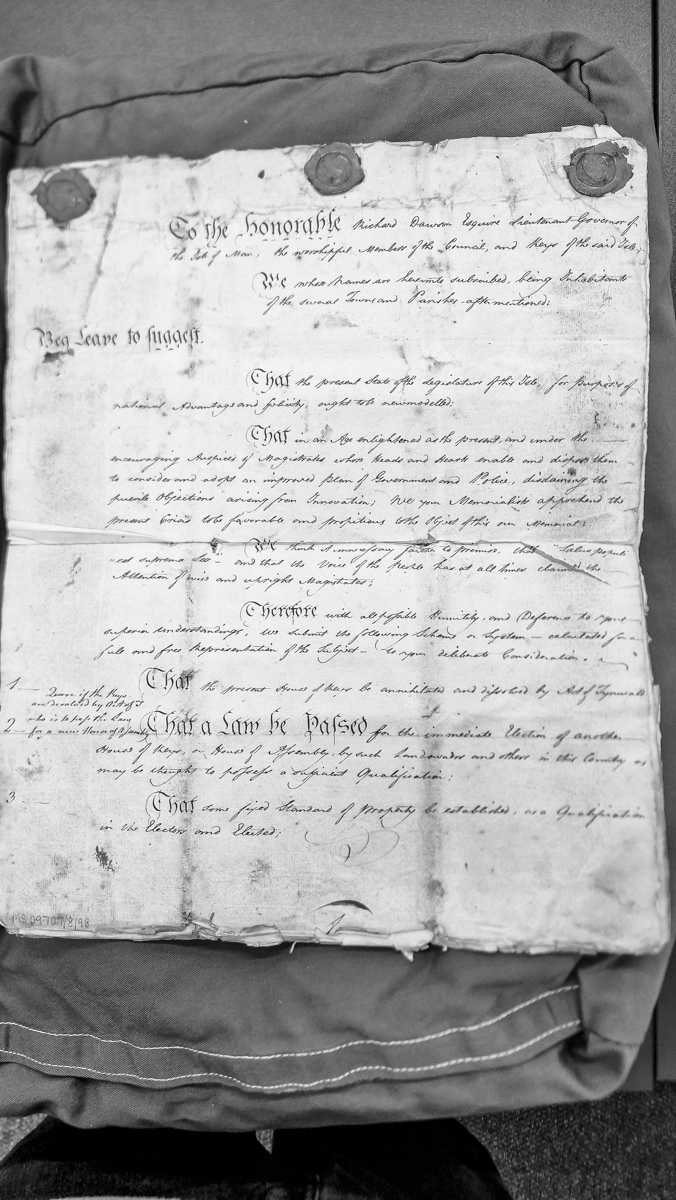 To the honorable Richard Dawson Esquire Lieutenant Governor of
the Isle of Man, the worshipful Members of the Council, and Keys of the said Isle;
We whose Names are hereunto subscribed, being Inhabitants
of the several Towns and Parishes aftermentioned;
Beg Leave to suggest.
That the present State of the Legislature of this Isle, for Purposes of
national Advantage and felicity, ought to be newmodelled;
That in an Age enlightened as the present, and under the
encouraging Auspices of Magistrates whose Heads and Hearts enable and dispose them
to consider and adopt an improved plan of Government and Police, disdaining the
puerile Objections arising from Innovation; We your Memorialists apprehend the
present Crisis to be favorable and propitious to the Object of this our Memorial;
We think it necessary farther to premise, that "Salus populi
est suprema Lex" and that the Voice of the people has at all times claimed the
Attention of wise and upright Magistrates;
Therefore with all possible Humility, and Deference to your
superior understandings, We submit the following Scheme or System – calculated for a
full and free Representation of the Subject – to your deliberate Consideration.
1 That the present House of Keys be annihilated and dissolved by Act of Tynwald
Quere if the Keys
are dissolved by Act of T
who is to pass the Law
for a new House of Assembly
2 That a Law be Passed for the immediate Election of another
House of Keys, or House of Assembly, by such Landowners and others in this Country as
may be thought to possess a sufficient Qualification;
3 That some fixed Standard of Property be established, as a Qualification
in the Electors and Elected;
1